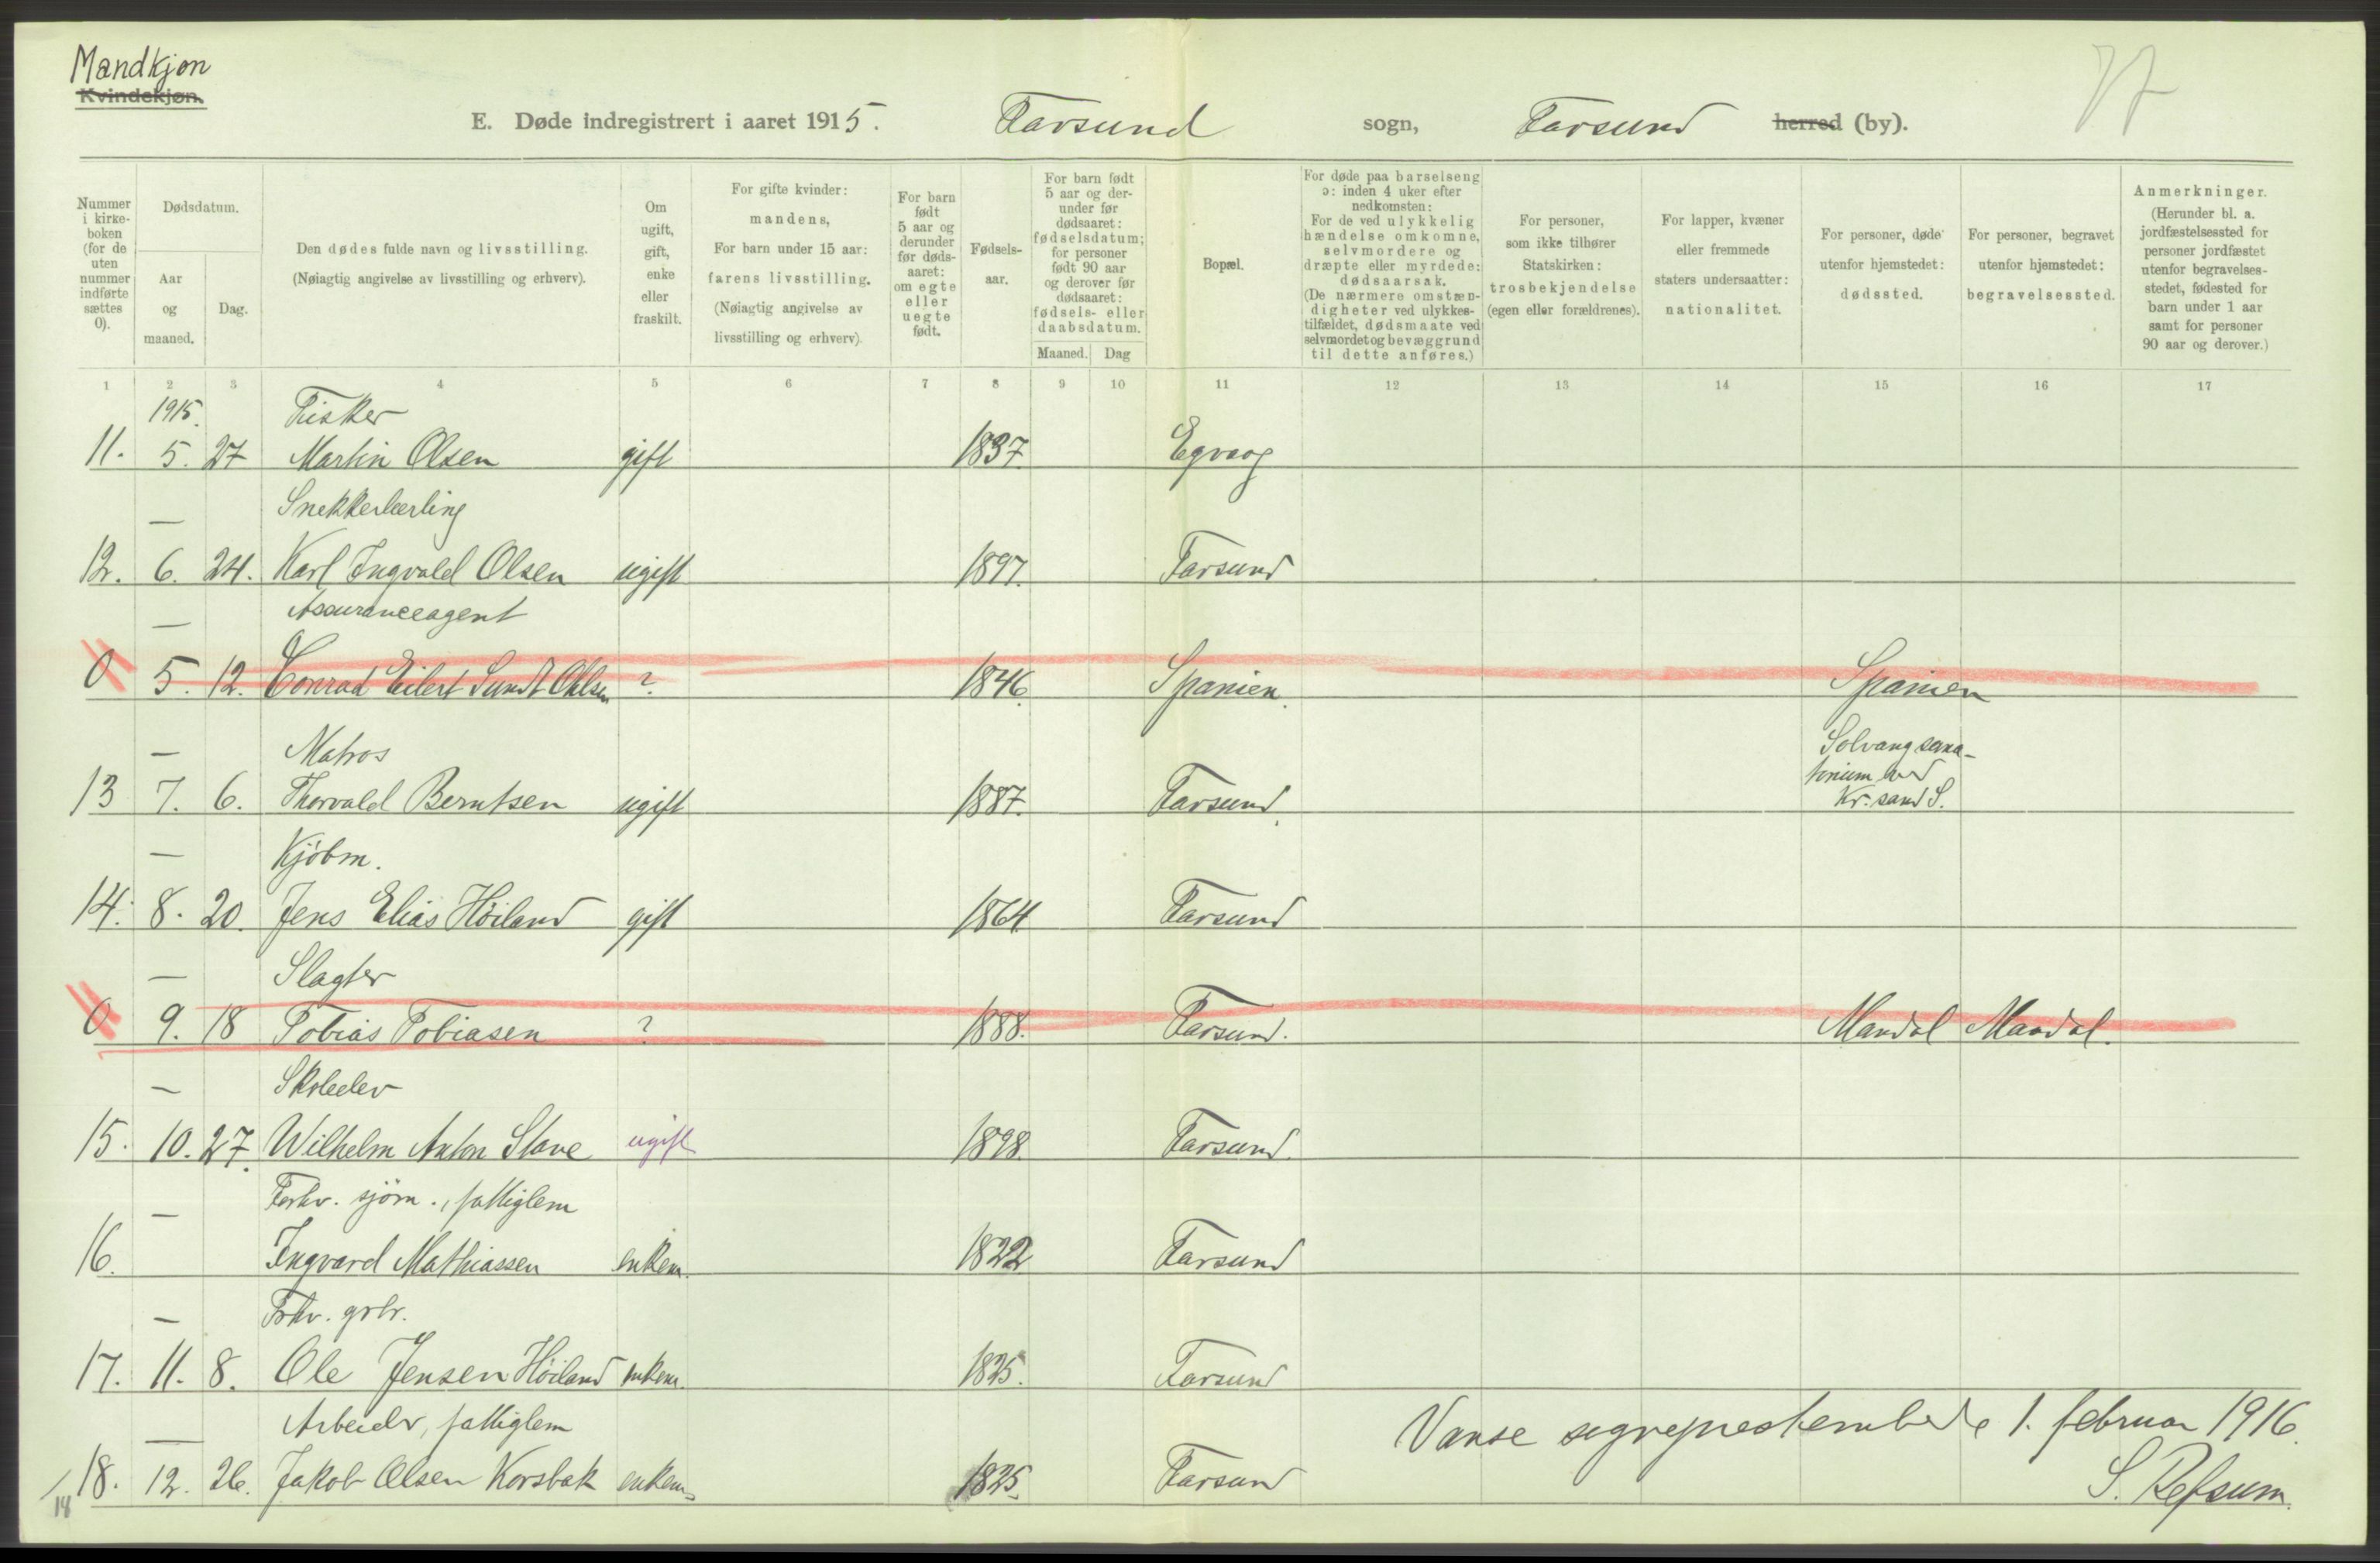 Mandkjøn
Kvindekjøn.
77
E. Døde indregistrert i aaret 1915. Farsund sogn, Farsund herred (by).
Nummer i kirke-boken (for de uten nummer indførte sættes 0).
Dødsdatum.
Aar og maaned.
Dag.
Den dødes fulde navn og livsstilling.
(Nøiagtig angivelse av livsstilling og erhverv).
Om ugift, gift, enke eller fraskilt.
For gifte kvinder: mandens,
For barn under 15 aar: farens livsstilling.
(Nøiagtig angivelse av livsstilling og erhverv).
For barn født 5 aar og derunder før døds-aaret: om egte eller uegte født.
Fødsels-aar.
For barn født 5 aar og der-under før dødsaaret: fødselsdatum; for personer født 90 aar og derover før dødsaaret: fødsels- eller daabsdatum.
Maaned. Dag
Bopæl.
For døde paa barselseng ɔ: inden 4 uker efter nedkomsten:
For de ved ulykkelig hændelse omkomne, selvmordere og dræpte eller myrdede: dødsaarsak.
(De nærmere omstæn-digheter ved ulykkes-tilfældet, dødsmaate ved selvmordet og bevæggrund til dette anføres.)
For personer, som ikke tilhører Statskirken: trosbekjendelse (egen eller forældrenes).
For lapper, kvæner eller fremmede staters undersaatter: nationalitet.
For personer, døde utenfor hjemstedet: dødssted.
For personer, begravet utenfor hjemstedet: begravelsessted.
Anmerkninger.
(Herunder bl. a. jordfæstelsessted for personer jordfæstet utenfor begravelses-stedet, fødested for barn under 1 aar samt for personer 90 aar og derover.)
1 2 3 4 5 6 7 8 9 10 11 12 13 14 15 16 17
1915. Fisker
11. 5. 27 Martin Olsen gift 1837. Egvaag
— Snekkerlærling
12. 6. 24. Karl Ingvald Olsen ugift 1897. Farsund
— Assuranceagent
0 5. 12. Conrad Eilert Sundt Ohlsen ? 1846. Spanien. Spanien
— Matros
13 7. 6. Thorvald Berntsen ugift 1887. Farsund. Solvang sana-
torium ved
Kr.sand S.
— Kjøbm.
14. 8. 20. Jens Elias Höiland gift 1864 Farsund
— Slagter
0 9. 18 Tobias Tobiasen ? 1888. Farsund. Mandal Mandal.
— Skoleelev
15. 10. 27. Wilhelm Anton Stave ugift 1898. Farsund.
— Forhv. sjöm., fattiglem
16. Ingvard Mathiassen enkem. 1822 Farsund
— Forhv. grbr.
17. 11. 8. Ole Jensen Höiland enkem. 1825. Farsund
— Arbeider, fattiglem
18. 12. 26. Jakob Olsen Korsbak enkem. 1825. Farsund
14
Vanse sogneprestembede 1. februar 1916.
S. Refsum.